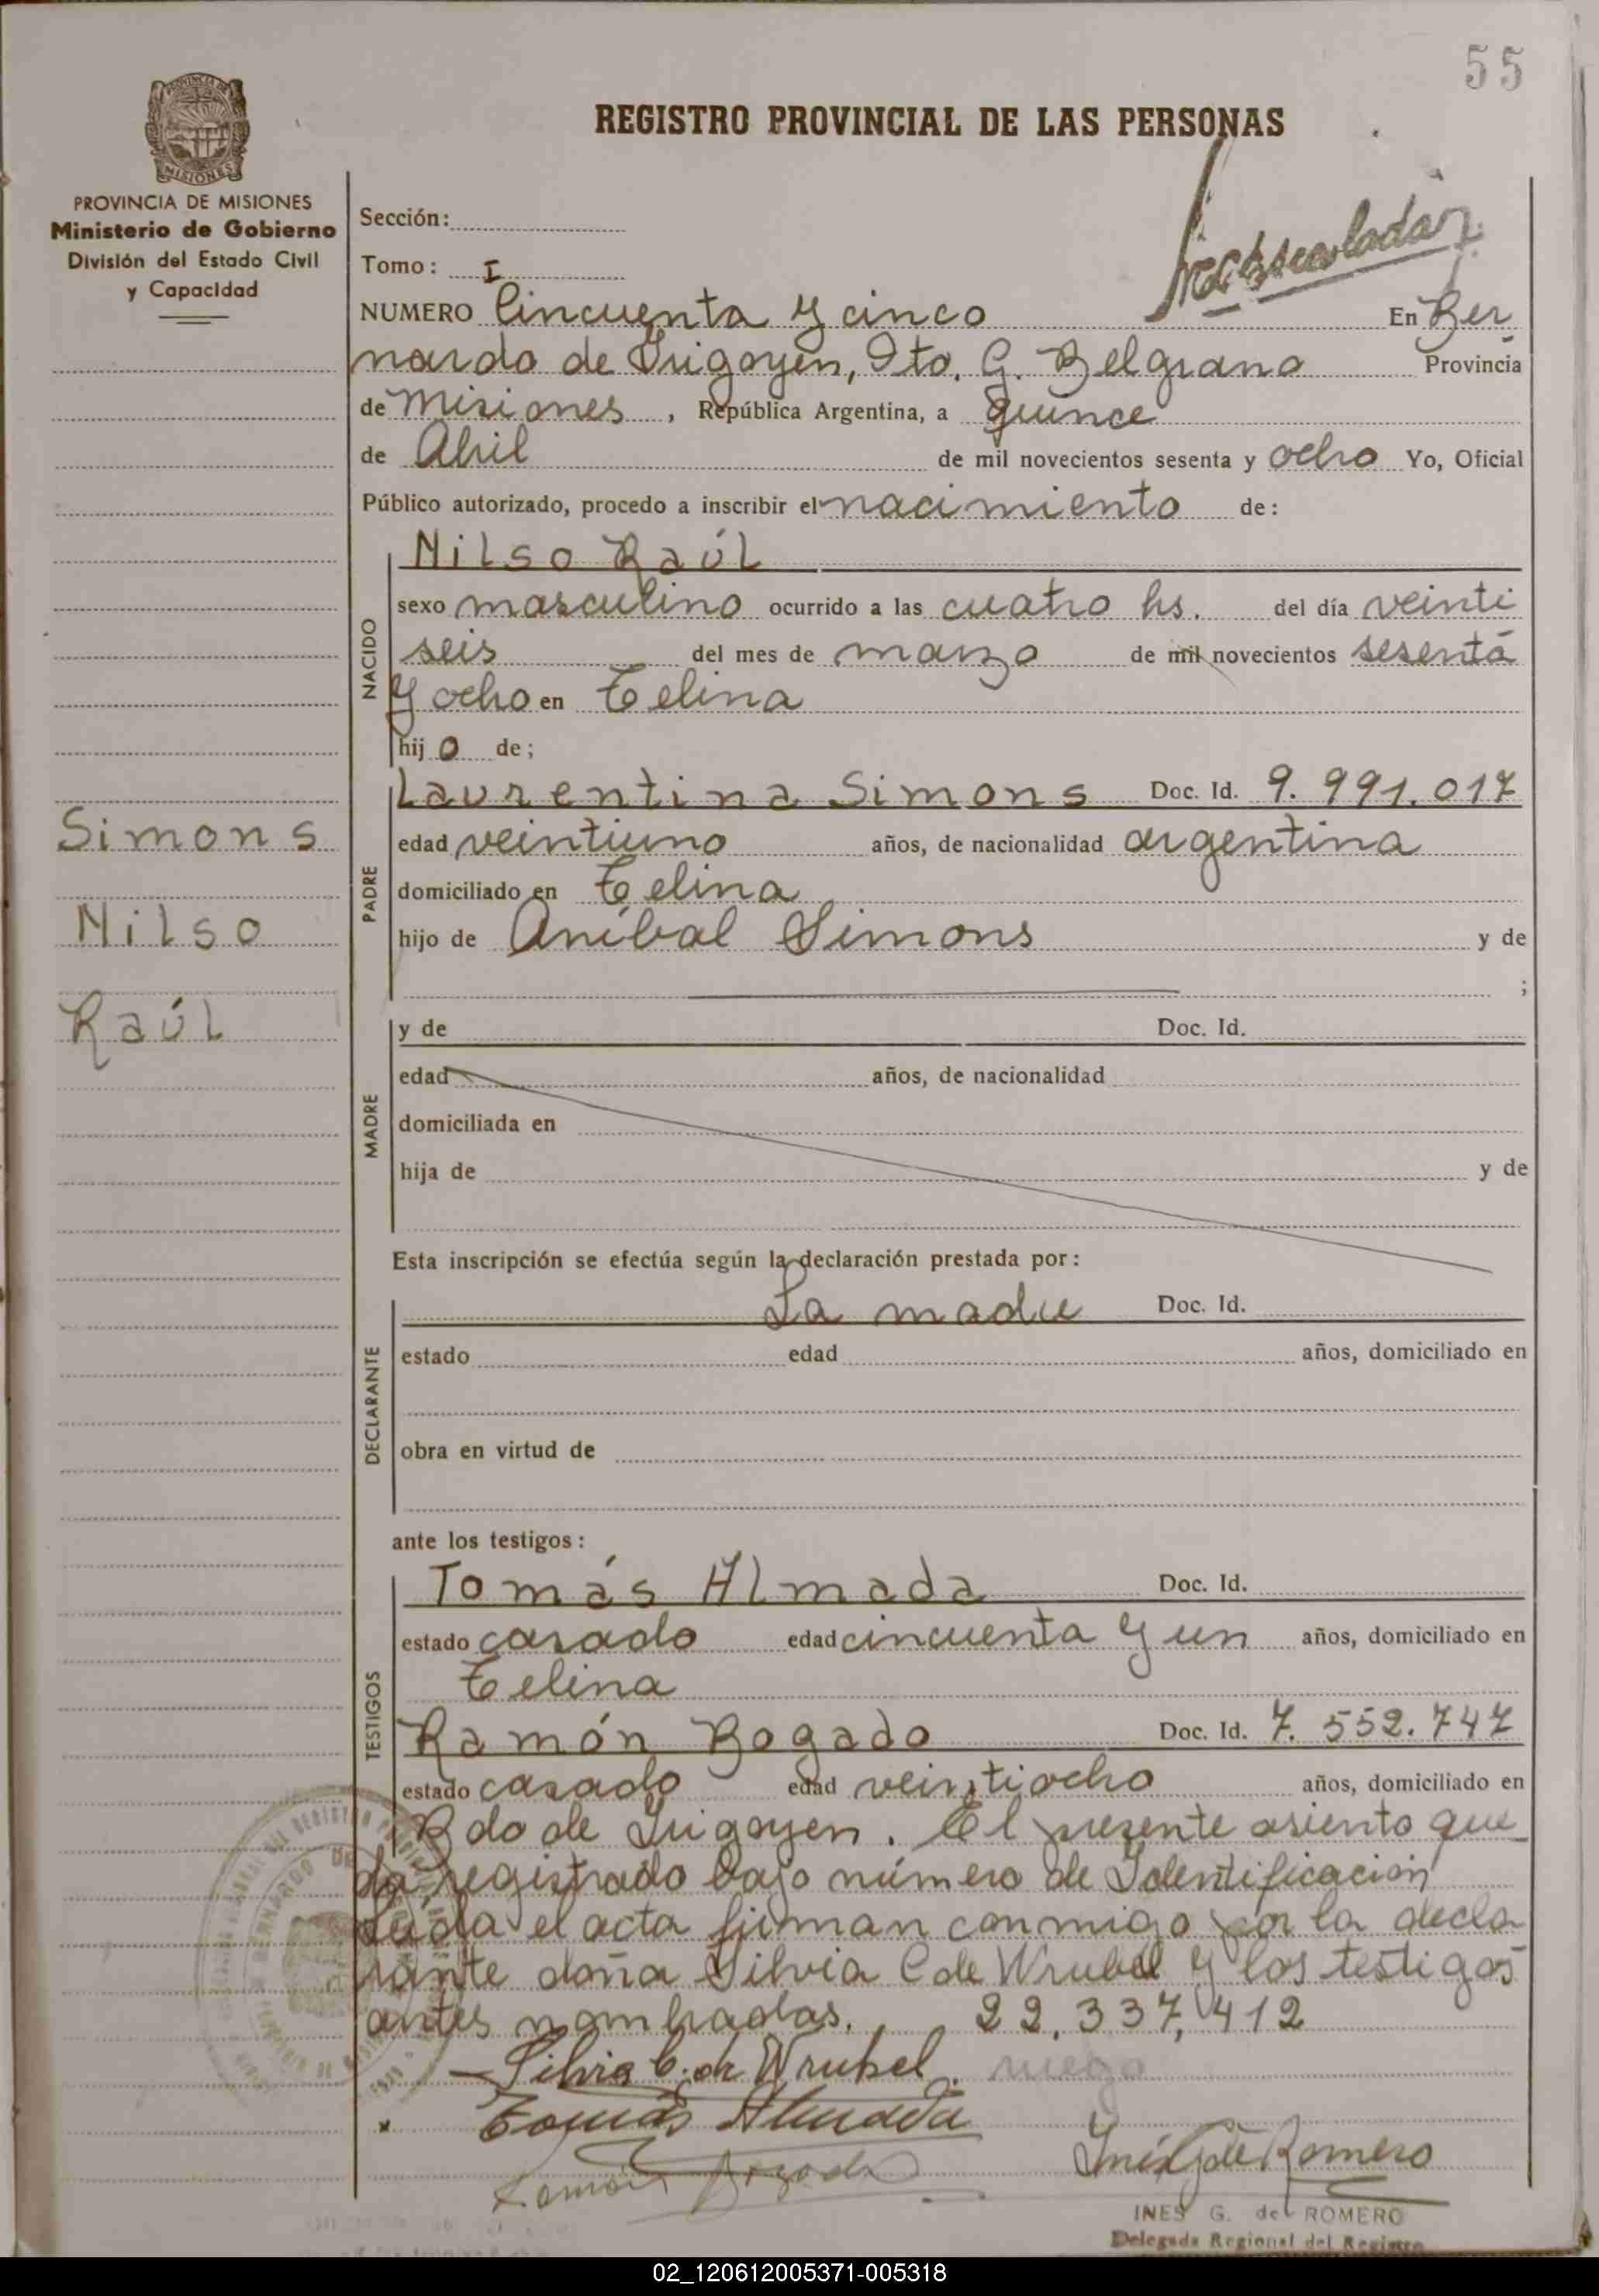 55
REGISTRO PROVINCIAL DE LAS PERSONAS
PROVINCIA DE MISIONES
Ministerio de Gobierno
División del Estado Civil
y Capacidad
Sección:
Tomo: I
NUMERO Cincuenta y cinco En Ber
nardo de Irigoyen, Dto. G. Belgrano Provincia
de Misiones, República Argentina, a quince
de Abril de mil novecientos sesenta y ocho Yo, Oficial
Público autorizado, procedo a inscribir el nacimiento de:
NACIDO
Nilso Raúl
sexo masculino ocurrido a las cuatro hs. del día veinti
seis del mes de marzo de mil novecientos sesenta
y ocho en
hijo de;
PADRE
Laurentina Simons Doc. Id. 9.991.017
edad veintiuno años, de nacionalidad argentina
domiciliado en
hijo de Aníbal Simons y de
;
Simons
Nilso
Raúl
MADRE
y de Doc. Id.
edad años, de nacionalidad
domiciliada en
hija de y de
Esta inscripción se efectúa según la declaración prestada por:
DECLARANTE
La madre Doc. Id.
estado edad años, domiciliado en
obra en virtud de
ante los testigos:
TESTIGOS
Tomás Almada Doc. Id.
estado casado edad cincuenta y un años, domiciliado en
Ramón Bogado Doc. Id. 7.552.747
estado casado edad veintiocho años, domiciliado en
Bdo de Irigoyen. El presente asiento que
da registrado bajo número de Identificación
el acta firman conmigo por la decla
rante doña Silvia C de Wrubel y los testigos
antes nombrados. 22.337.412
Silvia C. de Wrubel
Tomás Almada
Ramón Bogado
Inés G de Romero
INES G. de ROMERO
Delegada Regional del Registro
02_120612005371-005318